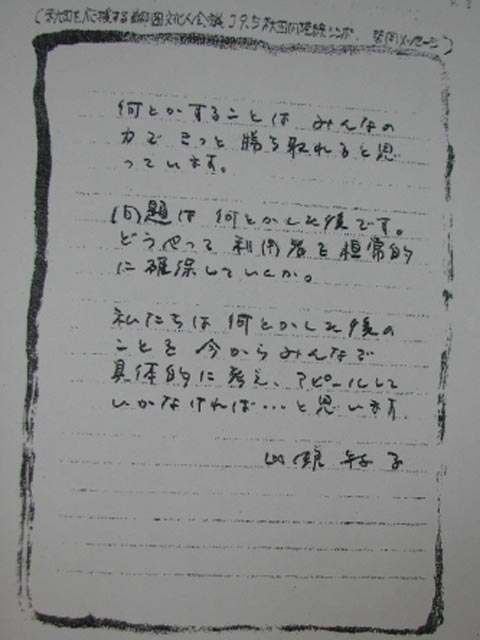 (秋田を応援する 文化人会議 9.5秋田内陸線シンポ、賛同メッセージ)
何とかすることは みんなの
力で きっと 勝ち取れると思
っています。
問題は 何とかした後です。
どうやって 利用者を恒常的
に確保していくか。
私たちは 何とかした後の
ことを 今からみんなで
具体的に考え、アピールして
いかなければ…と思います